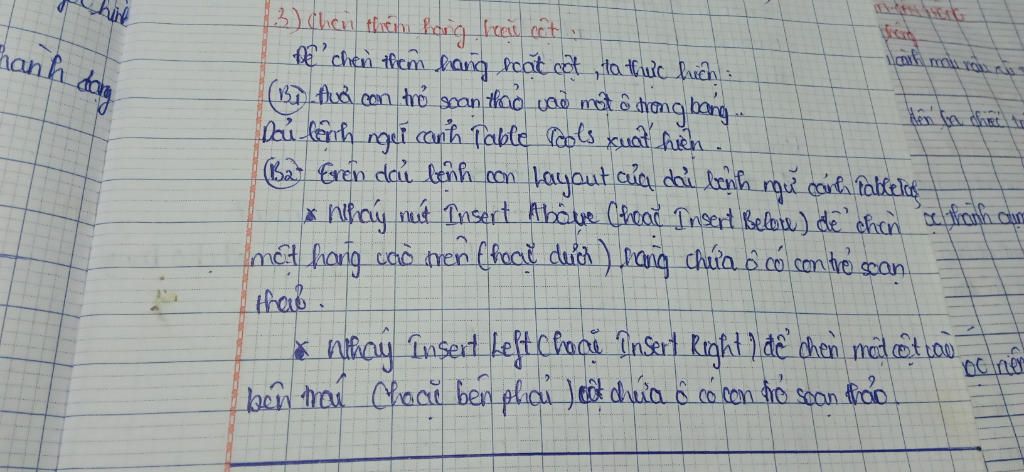 3) Chèn thêm hàng hoặc cột :
Để chèn thêm hàng hoặc cột, ta thực hiện :
(B1) Đưa con trỏ soạn thảo vào một ô trong bảng.
Dải lệnh ngữ cảnh Table Tools xuất hiện.
(B2) Trên dải lệnh con Layout của dải lệnh ngữ cảnh Table Tools
* Nháy nút Insert Above (hoặc Insert Below) để chèn
một hàng vào trên (hoặc dưới) hàng chứa ô có con trỏ soạn
thảo.
* Nháy Insert Left (hoặc Insert Right) để chèn một cột vào
bên trái (hoặc bên phải) cột chứa ô có con trỏ soạn thảo.
hành dạng